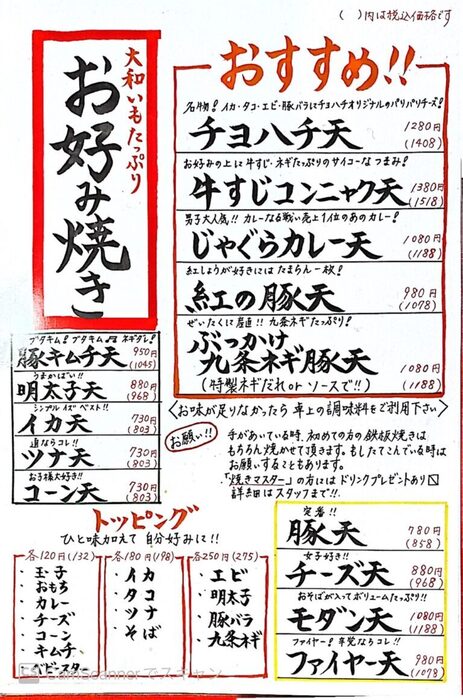 ( )内は税込価格です
大和いもたっぷり
お好み焼き
おすすめ!!
名物!イカ・タコ・エビ・豚バラにチヨハチオリジナルのパリパリチーズ!
チヨハチ天 1280円 (1408)
お好みの上に牛すじ・ネギたっぷりのサイコーなつまみ!
牛すじコンニャク天 1380円 (1518)
男子大人気!!カレーなる戦い売上1位のあのカレー!
じゃぐらカレー天 1080円 (1188)
紅しょうが好きにはたまらん一枚!
紅の豚天 980円 (1078)
ぜいたくに産直!!九条ネギたっぷり!
ぶっかけ
九条ネギ豚天 1080円
(特製ネギだれorソースで!!) (1188)
ブタキム!ブタキム♫ネギダレ!
豚キムチ天 950円 (1045)
うまかばい!!
明太子天 880円 (968)
シンプルイズベスト!!
イカ天 730円 (803)
通ならコレ!!
ツナ天 730円 (803)
お子様大好き!!
コーン天 730円 (803)
<お味が足りなかったら卓上の調味料をご利用下さい>
お願い!!
手があいている時、初めての方の鉄板焼きは
もちろん焼かせて頂きます。もしたてこんでいる時は
お願いすることもあります。
「焼きマスター」の方にはドリンクプレゼントあり
詳細はスタッフまで!!
トッピング
ひと味加えて自分好みに!!
各120円(132)
・玉子
・おもち
・カレー
・チーズ
・コーン
・キムチ
・ベビースター
各180円(198)
・イカ
・タコ
・ツナ
・そば
各250円(275)
・エビ
・明太子
・豚バラ
・九条ネギ
定番!!
豚天 780円 (858)
女子好き!!
チーズ天 880円 (968)
おそばが入ってボリュームたっぷり!!
モダン天 1080円 (1188)
ファイヤー!辛党ならコレ!!
ファイヤー天 980円 (1078)
CamScannerでスキャン